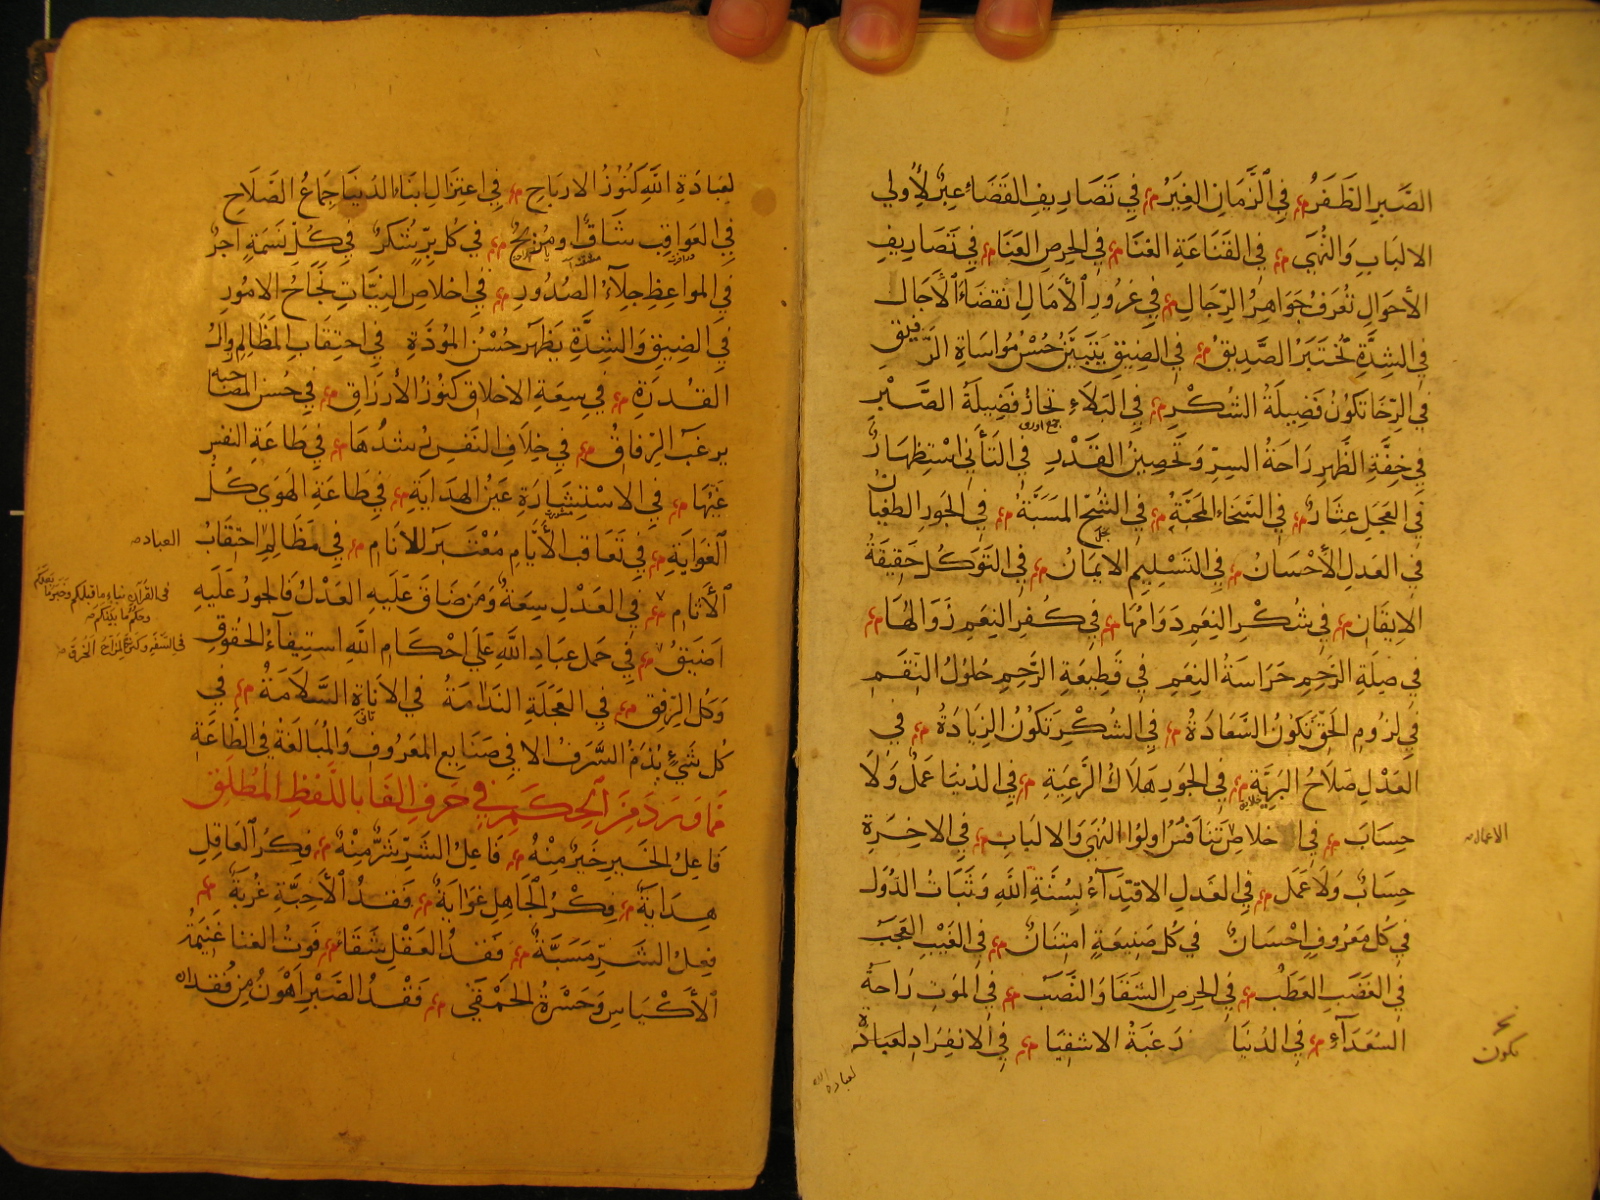 الصَّبرِ الظَفَرُ في الزَّمَانِ الغِيَرُ في تَصَاريفِ القَضَاءِ عِبَرٌ لأُولي
الالبَابِ وَالنُّهَى في القَنَاعَةِ الغنَا في الحِرصِ العَنَا في تَصَاريفِ
الأحوَالِ تُعرَفُ جَوَاهِرُ الرِّجَالِ في غرُورِ الأمَالِ انقضَاءُ الأجَالِ
في الشِدَّةِ يُختَبَرُ الصَّدِيقُ في الضِيقِ يَتَبَيَّنُ حُسْنُ مُوَاسَاةِ الرَّفيقِ
في الرَّخَا تكُونُ فَضِيلَةُ الشكْرِ في البَلَاءِ تحَازُ فضِيلَةُ الصَّبْرِ
في خِفَّةِ الظَهرِ رَاحَةُ السِرِّ وَتَحصِينُ القَدْرِ في التَأَنّي اسْتِظهَارٌ
في العَجَلِ عِثَارٌ في السَّخَاءِ المحَبَّةُ في الشُّحّ المَسَبَّةُ في الجَورِ الطغيَانُ
في العَدلِ الأحْسَانُ في التَسْلِيمِ الايمَانُ في التَوَكُلِ حَقِيقَةُ
الايقَانِ في شكْرِ النِعَمِ دَوَامُهَا في كُفرِ النِعَمِ زَوَالُهَا
في صِلَةِ الرَحِمِ حَرَاسَةُ النِعَمِ في قَطِيعَةِ الرَّحِمِ حُلولُ النِقَمِ
في لزُومِ الحَقّ تَكُونُ السَّعَادَةُ في الشُكْرِ تَكُونُ الزيَادَةُ في
العَدْلِ صَلَاحُ البَريَّةِ في الجَورِ هَلَاكُ الرَّعِيَةِ في الدُنيَا عَمَلٌ وَلَا
حِسَابَ في اخلاصِ تَنَافَسُ اولوا النُهَى وَالالبَابِ في الاخِرَةِ
حِسَابٌ وَلَا عَمَل في العَدلِ الاقتِدَآءُ بسُنَّةِ اللَّهِ وَثَبَاتُ الدُوَل
في كُل مَعرُوفٍ اِحْسَانٌ في كُل صَنِيعَةٍ امتِنَانٌ في الغَيْبِ العَجَبُ
في الغَضَبِ العَطَبُ في الحِرصِ الشقَا وَالنَّصَبُ في المَوتِ رَاحَةُ
السُعَدَآءِ في الدُنيَا رَغبَةُ الاشقِيَا في الانفِرَادِ لعِبَادَة
بخل
خلايق
الاعمال
نخـ
تكون
لعبادة الله
لعِبَادَةِ اللَّهِ كنُوزُ الاربَاحِ في اعتِزَالِ ابنَاءِ الدُنيَا جِمَاعُ الصَلَاحِ
في العَوَاقِبِ شَاقٌّ ومُريحٌ في كُل بِرٍّ شُكرٌ في كُلّ نَسَمَةٍ اجرٌ
في المواعِظِ جِلآءُ الصُدُورِ في اخلاصِ النيَّاتِ نَجَاحُ الامُورِ
في الضِيقِ وَالشدَّةِ يَظهَر حُسْنُ المَوَدَّةِ في احتِقَابِ المَظَالمِ زوَالُ
القُدرَةِ في سِعَةِ الاخلاقِ كنُوزُ الأرزَاقِ في حُسنِ المصَاحبَة
يرغبُ الرِفَاقُ في خِلَافِ النَفسِ رُشدُهَا في طَاعَةِ النفسِ
غَيُّهَا في الاسْتِشَارَةِ عَينُ الهِدَايَةِ في طَاعَةِ الهَوَى كُلُّ
الغَوَايَةِ في تَعَاقُبِ الأيَّامِ مُعْتَبَرٌ للأنَامِ في مَظَالِمِ احتِقَابُ
الأثَامِ في العَدْلِ سِعَةٌ وَمَن ضَاقَ عَلَيهِ العَدْلُ فَالجورُ عَلَيهِ
اضيَقُ في حَملِ عِبَادِ اللَّهِ عَلى احْكَامِ اللَّهِ استِيفَآءُ الحُقُوقِ
وَكل الرِفقِ في العَجَلَةِ النَدَامَةُ في الانَاةِ السَّلَامَةُ في
كُل شَيءٍ يُذَمُّ السَّرَفُ الا في صَنَايعِ المَعرُوفِ وَالمُبَالَغَةْ في الطَاعَةِ
مما وَرَدَ مِنَ الحِكَمِ في حَرفِ الفَا باللَّفظِ المُطْلَقِ
فَاعِلُ الخَيرِ خَيرٌ مِنْهُ فَاعِلُ الشَرِّ شَرٌّ مِنْهُ فِكرُ العَاقِلِ
هِدَايَةٌ فِكْرُ الجَاهِلِ غوَايَةٌ فَقدُ الأحِبَّةِ غُربَةٌ
فِعلُ الشَرِّ مَسَبَّةٌ فَقدُ العَقْلِ شَقَاءٌ فَوتُ الغنَا غَنِيمَةُ
الأكْيَاسِ وَحَسْرَةُ الحَمْقَى فَقْدُ الصَّبْرِ اَهْوَنُ مِن فُقدَان
مشورة
تأنى
العباد
في القرآنِ نباءُ ما قبلكم وَخبَرُ ما بعدَكم
وحكمُ ما بينكم